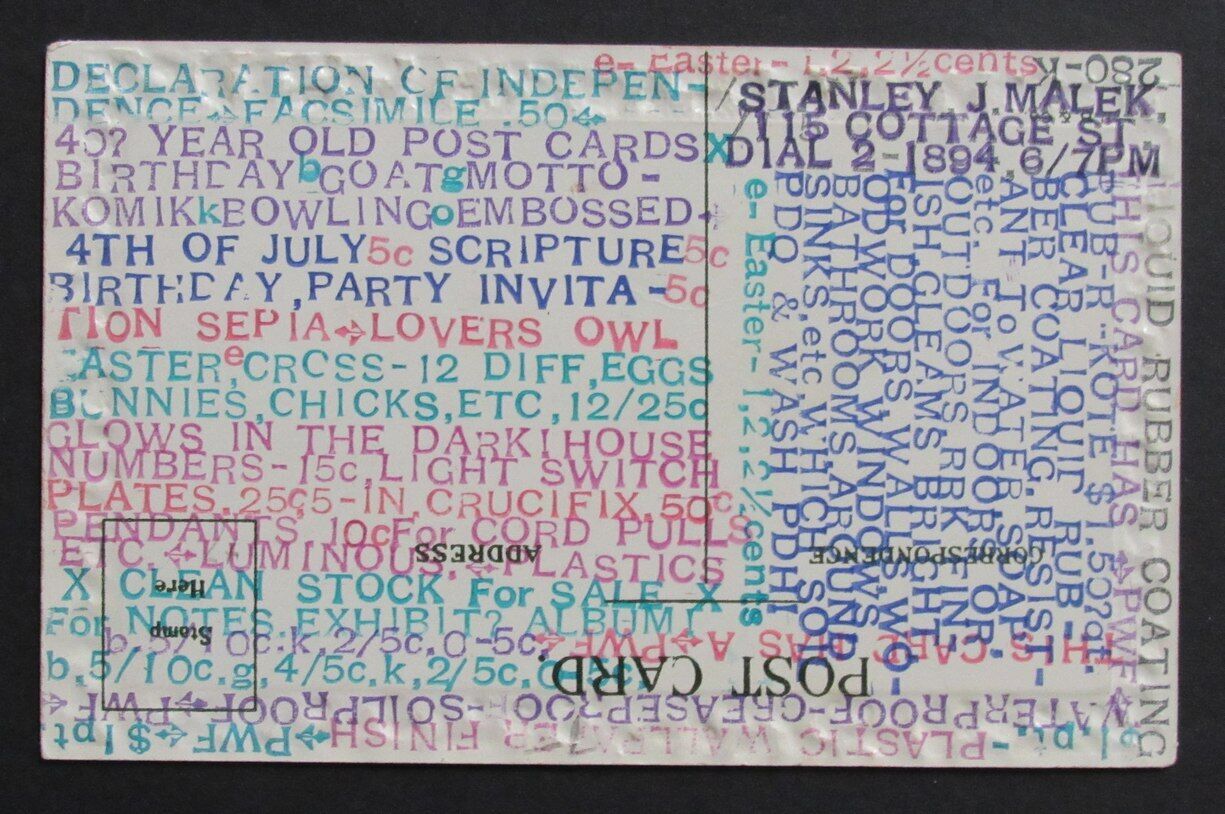 e- Easter- 1,2,2½cents
280-K
DECLARATION OF INDEPEN-
DENCE FACSIMILE .50
40? YEAR OLD POST CARDS X
BIRTHDAY b GOAT g MOTTO-
KOMIK k BOWLING o EMBOSSED.
4TH OF JULY 5c SCRIPTURE 5c
BIRTHDAY, PARTY INVITA-5c
TION SEPIA LOVERS OWL
EASTER e,CROSS-12 DIFF,EGGS
BUNNIES,CHICKS,ETC,12/25c
GLOWS IN THE DARK! HOUSE
NUMBERS-15c,LIGHT SWITCH
PLATES.25c5-IN.CRUCIFIX.50c
PENDANTS 10cFor CORD PULLS
ETC. LUMINOUS. PLASTICS
X CLEAN STOCK For SALE X
For NOTES.EXHIBIT? ALBUM!
b.5/10c.k.2/5c.o-5c
b,5/10c.g,4/5c.k,2/5c.
/STANLEY J.MALEK.
/115 COTTAGE ST.
DIAL 2-1894,6/7PM
LIQUID RUBBER COATING
THIS CARD HAS PWF
RUB-R "KOTE $1.50?qt.
CLEAR LIQUID RUB-
BER COATING. RESIST-
ANT To WATER.SOAP-
etc. For INDOORS OR-
OUTDOORS.RBK FIN-
ISH GLEAMS BRIGHT
For DOORS,WALLS,WO-
OD WORK,WINDOWS
BATHROOMS AROUND
SINKS,etc,WHICH SOO
PDO & WASH PDHI
e- Easter- 1,2,2½cents
THIS CARD HAS A PWF
POST CARD.
CORRESPONDENCE
ADDRESS
Stamp
Here
WATERPROOF-CREASEPROOF-SOILPROOF PWF
-PLASTIC WALLPAPER FINISH PWF $1pt